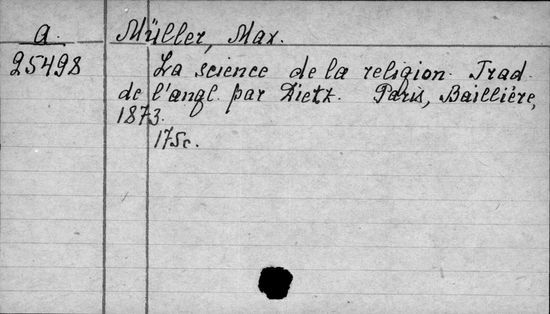 a. Müller, Max.
25498 La science de la religion. Trad.
de l'angl. par Dietz. Paris, Baillière,
1873.
175c.